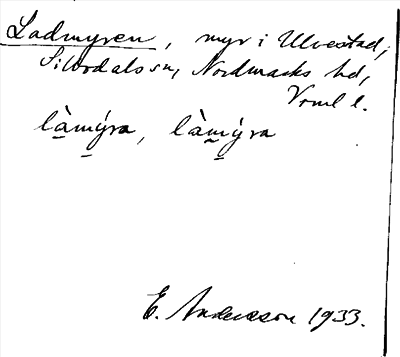 Ladmyren, myr i Ulvestad,
Silbodals sn, Nordmarks hd,
Vrml l.
là̱mý̱ra, là̱mý̱ra
E. Andersson 1933.